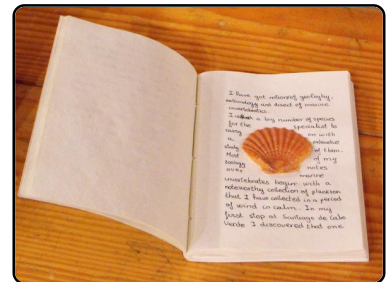 I have got notions of geology,
entomology and dissect of marine
invertebrates.
I a big number of species
for the specialist to
carry on with
a
study of them.
Most of my
zoology notes
over marine
invertebrates begun with a
noteworthy collection of plankton
that I have collected in a period
of wind in calm. In my
first stop at Santiago de Cabo
Verde I discovered that one